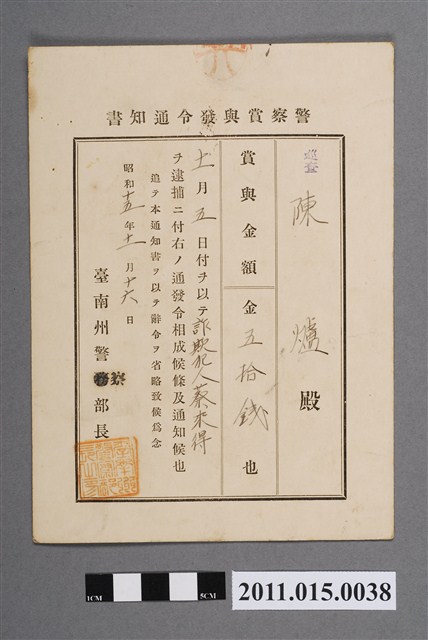 警察賞與發令通知書
巡査
陳爐殿
賞與金額 金五拾錢也
十一月五日付ヲ以テ詐欺犯人蔡来得
ヲ逮捕ニ付右ノ通發令相成候條及通知候也
追テ本通知書ヲ以テ辭令ヲ省略致候爲念
昭和十五年十一月十六日
臺南州警察部長
1CM
5CM
2011.015.0038